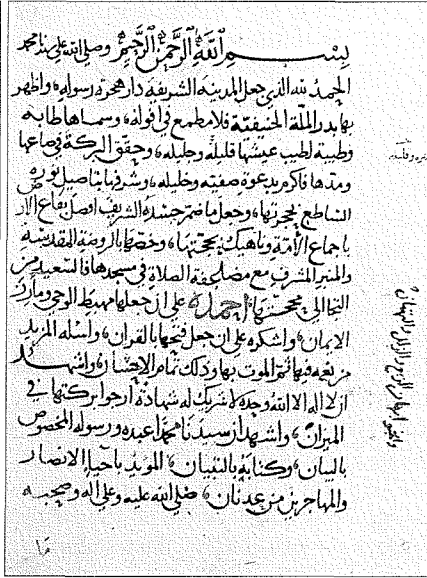 بسم الله الرحمن الرحيم وصلى الله على سيدنا محمد
الحمد لله الذي جعل المدينة الشريفة دار هجرة رسوله، واظهر
بها بدر الملة الحنيفية فلا مطمع في افوله، وسماها طابة
وطيبة لطيب عيشها قليله وجليله، وحقق البركة في صاعها
ومدها فاكرم بدعوة صفيه وخليله، وشرفها بتاصيل نوره
الساطع بحجرتها، وجعل ما ضم جسده الشريف افضل بقاع الارض
باجماع الأمة وناهيك ببهجتها، وخصها بالروضة المقدسة
والمنبر المشرف مع مضاعفة الصلاة في مسجدها فالسعيد من
التجا الى محجتها، احمده على ان جعلها مهبط الوحي ومارز
الايمان، واشكره على ان جعل فتحها بالقران، واسله المزيد
من نعمه فيها ثم الموت بها وذلك تمام الاحسان، واشهد
ان لا اله الا الله وحده لا شريك له شهادة ارجوا بركتها في
الميزان، واشهد ان سيدنا محمدا عبده ورسوله المخصوص
بالبيان، وكتابه بالتبيان، المؤيد باحياء الانصار
والمهاجرين من عدنان، صلى الله عليه وعلى اله وصحبه